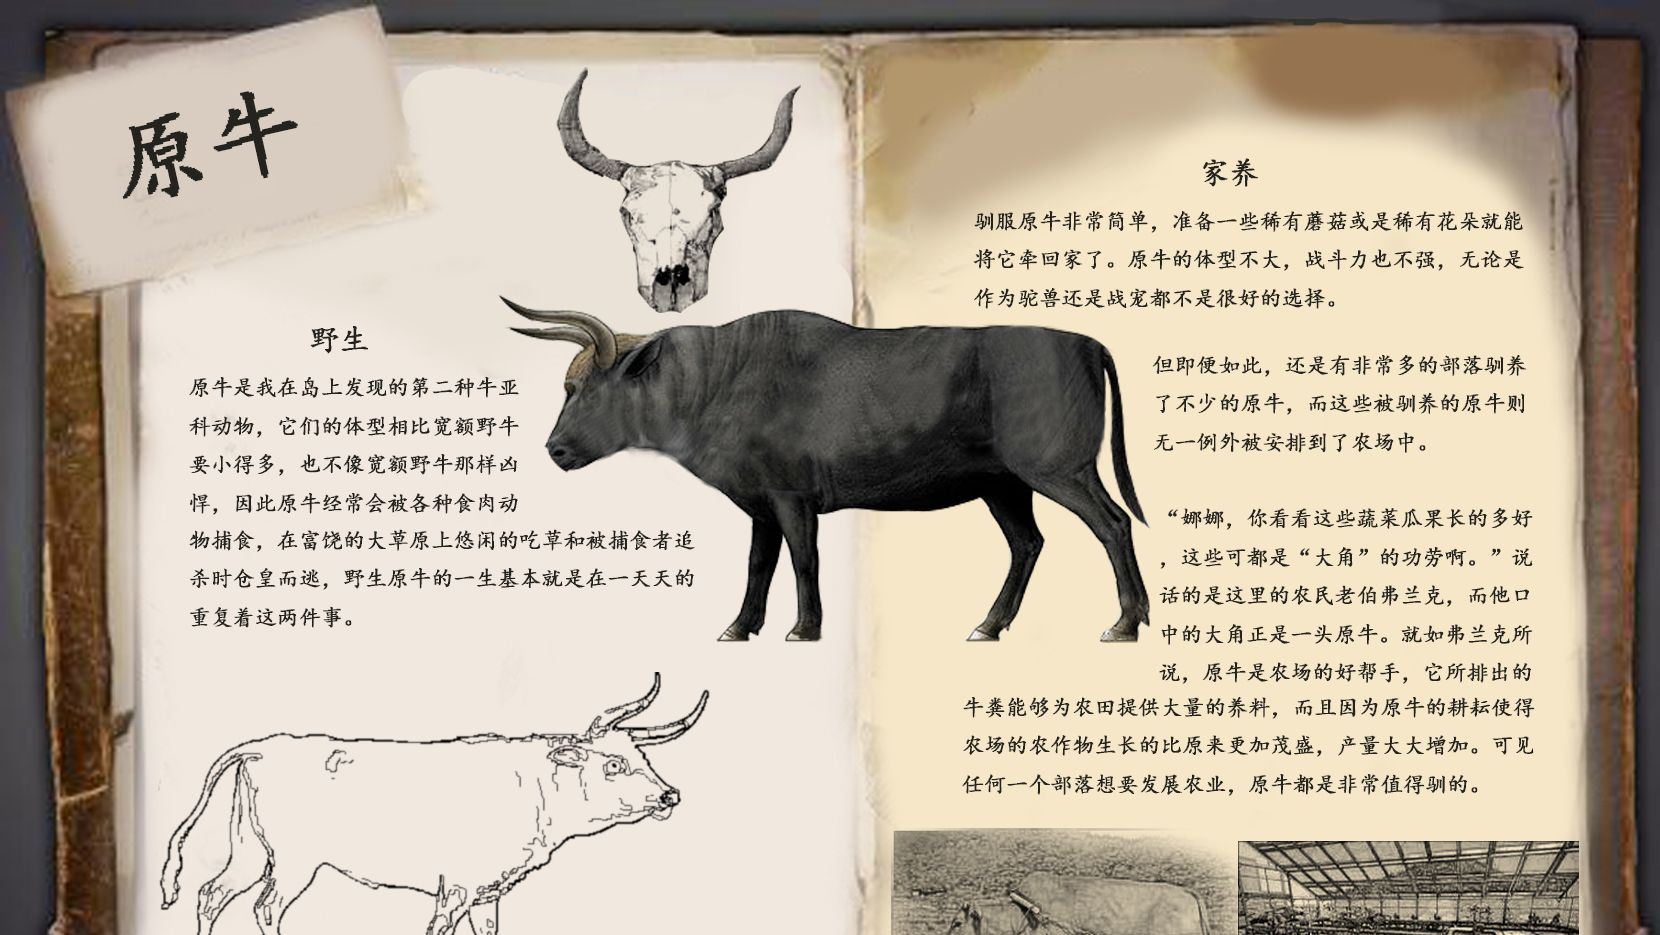 原牛
野生
原牛是我在岛上发现的第二种牛亚
科动物，它们的体型相比宽额野牛
要小得多，也不像宽额野牛那样凶
悍，因此原牛经常会被各种食肉动
物捕食，在富饶的大草原上悠闲的吃草和被捕食者追
杀时仓皇而逃，野生原牛的一生基本就是在一天天的
重复着这两件事。
家养
驯服原牛非常简单，准备一些稀有蘑菇或是稀有花朵就能
将它牵回家了。原牛的体型不大，战斗力也不强，无论是
作为驼兽还是战宠都不是很好的选择。
但即便如此，还是有非常多的部落驯养
了不少的原牛，而这些被驯养的原牛则
无一例外被安排到了农场中。
“娜娜，你看看这些蔬菜瓜果长的多好
，这些可都是“大角”的功劳啊。”说
话的是这里的农民老伯弗兰克，而他口
中的大角正是一头原牛。就如弗兰克所
说，原牛是农场的好帮手，它所排出的
牛粪能够为农田提供大量的养料，而且因为原牛的耕耘使得
农场的农作物生长的比原来更加茂盛，产量大大增加。可见
任何一个部落想要发展农业，原牛都是非常值得驯的。